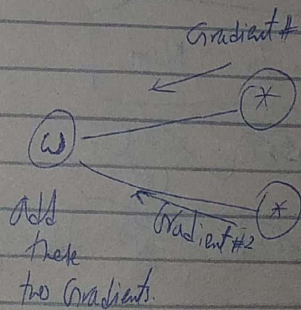 Gradient #
*
w
*
Gradient #2
Add
these
two Gradients.